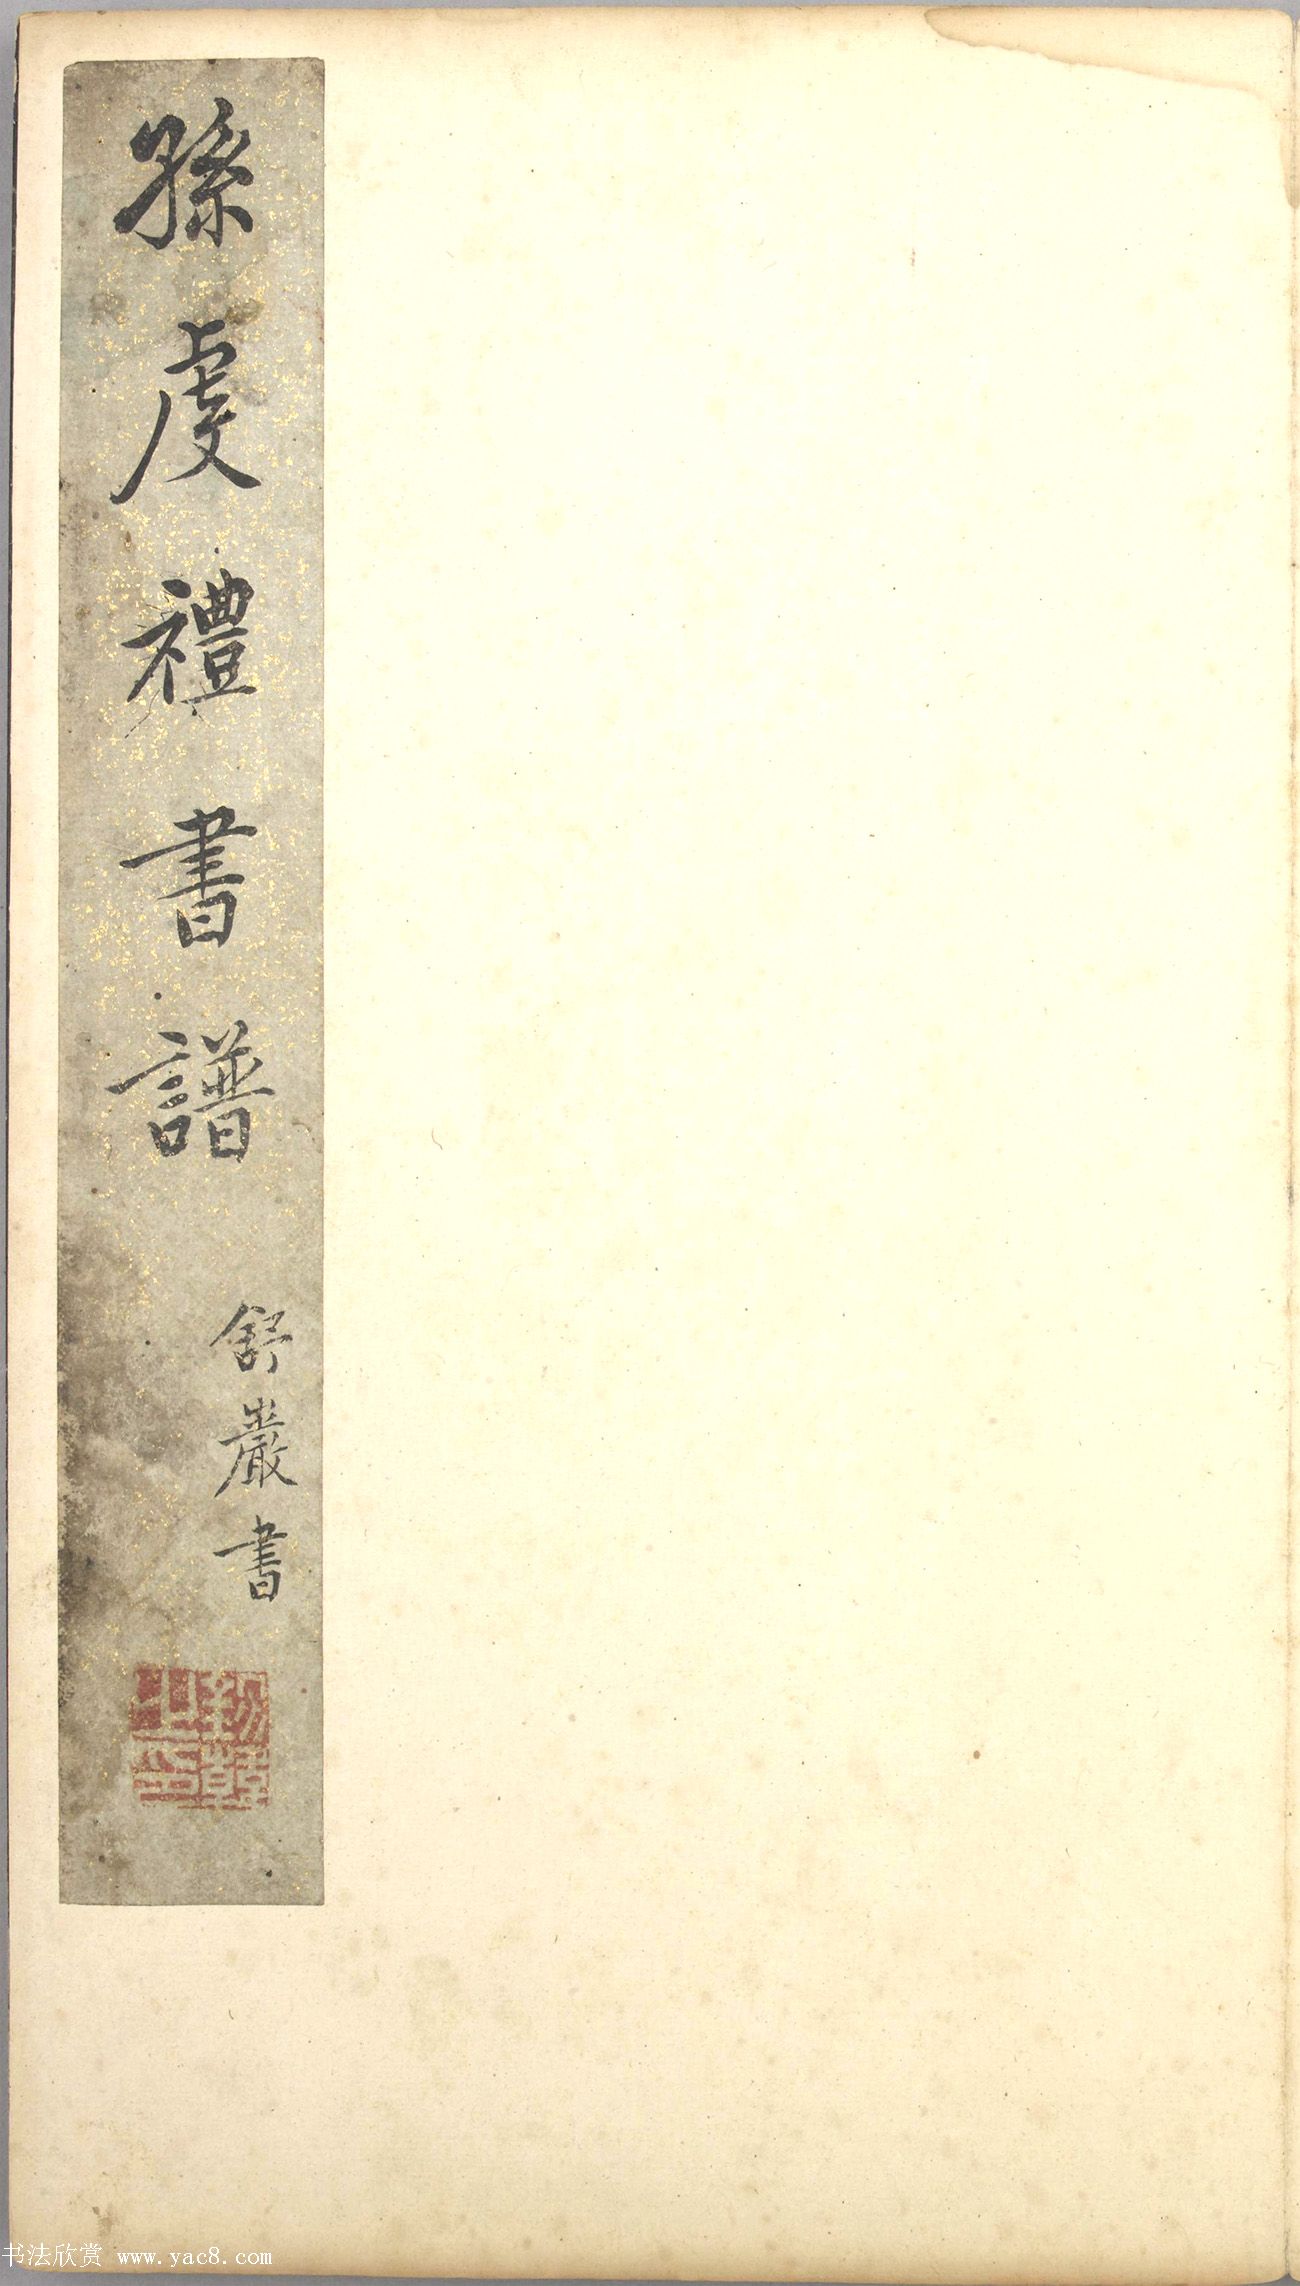 孫虔禮書譜
舒巖書
书法欣赏 www.yac8.com